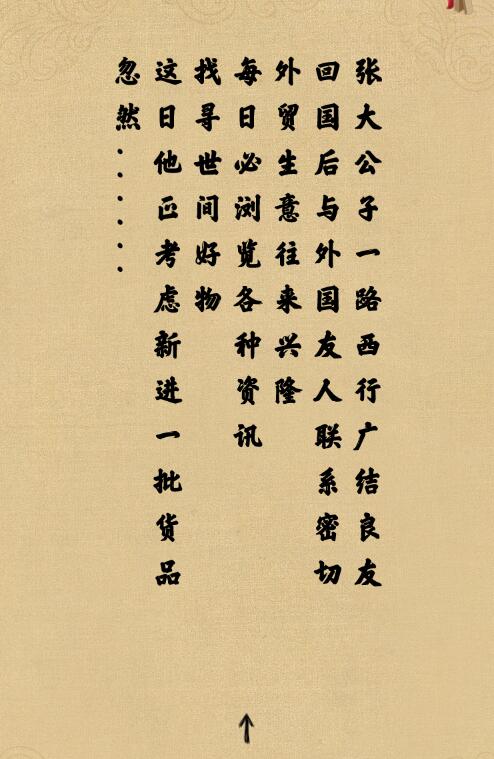 张大公子一路西行广结良友
回国后与外国友人联系密切
外贸生意往来兴隆
每日必浏览各种资讯
找寻世间好物
这日他正考虑新进一批货品
忽然······